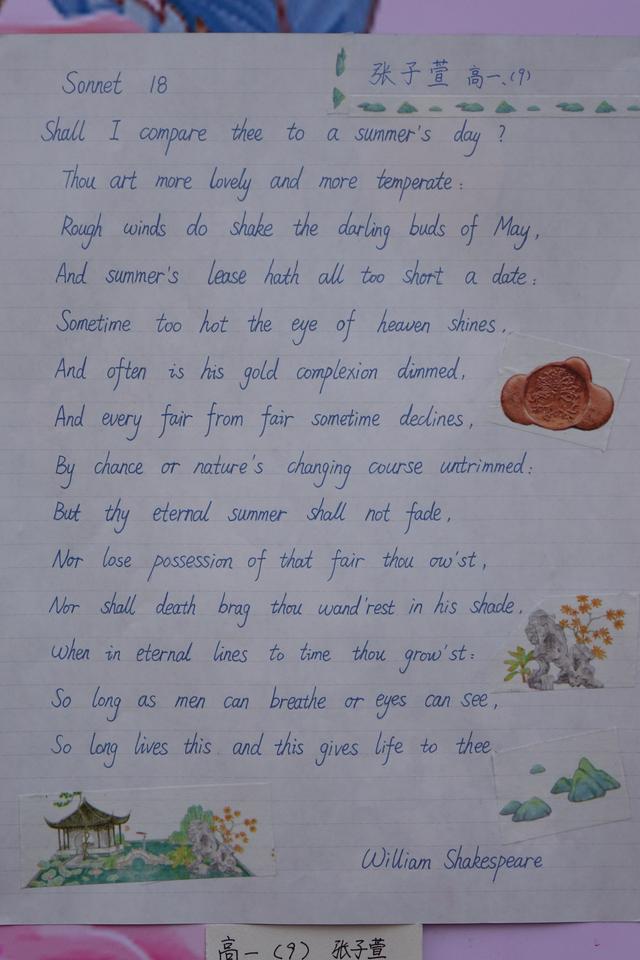 Sonnet 18
张子萱 高一.(9)
Shall I compare thee to a summer's day ?
Thou art more lovely and more temperate :
Rough winds do shake the darling buds of May,
And summer's lease hath all too short a date :
Sometime too hot the eye of heaven shines,
And often is his gold complexion dimmed,
And every fair from fair sometime declines,
By chance or nature's changing course untrimmed :
But thy eternal summer shall not fade,
Nor lose possession of that fair thou ow'st,
Nor shall death brag thou wand'rest in his shade,
When in eternal lines to time thou grow'st :
So long as men can breathe or eyes can see,
So long lives this and this gives life to thee
William Shakespeare
高一（9） 张子萱